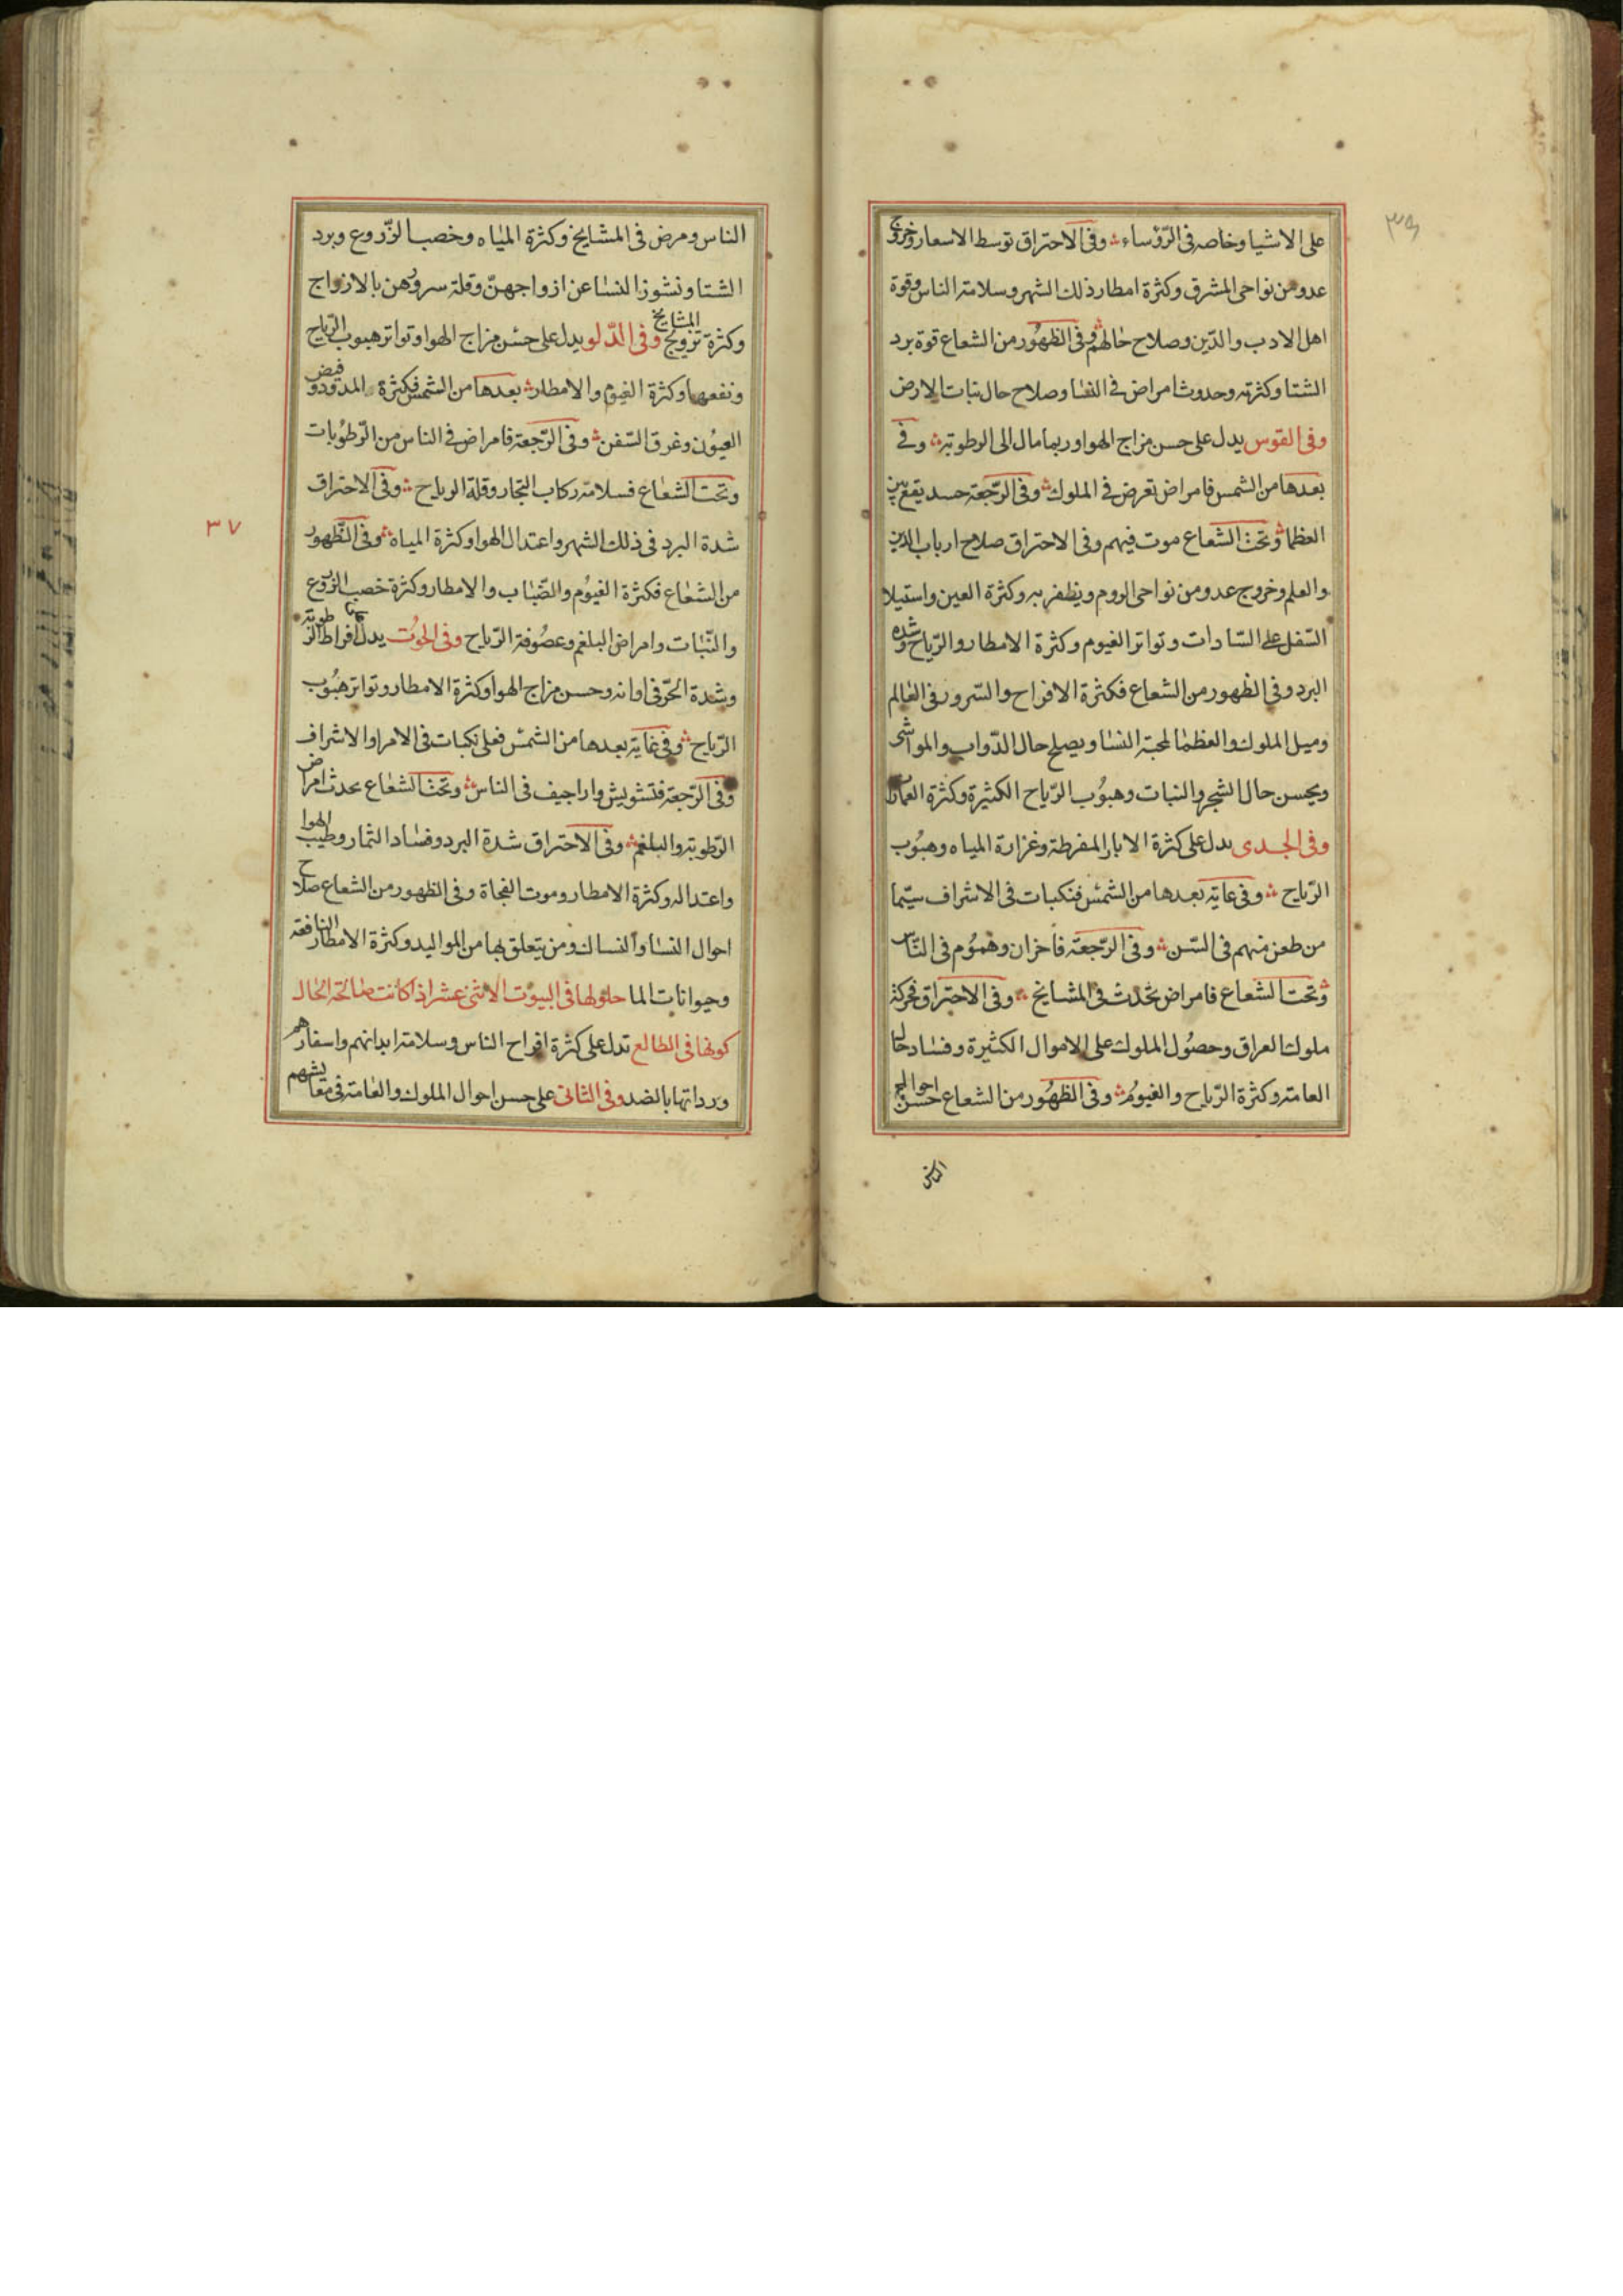 على الاشيا وخاصه فى الرّؤساء ؞ وفى الاحتراق توسط الاسعار وخروج
عدو من نواحى المشرق وكثرة امطار ذلك الشهر وسلامة الناس وقوة
اهل الادب والدّين وصلاح حالهم ؞ وفى الظهُور من الشعاع قوة برد
الشتا وكثرته وحدوث امراض فى النسا وصلاح حال نبات الارض
وفى القوس يدل على حسن مزاج الهوا وربما مال الى الرطوبة ؞ وفى
بعدها من الشمس فامراض تعرض فى الملوك ؞ وفى الرّجعة حسد يقع بين
العظما ؞ وتحت الشعاع موت فيهم وفى الاحتراق صلاح ارباب الدين
والعلم وخروج عدو من نواحى الروم ويظفر به وكثرة العين واستيلا
السّفل على السّادات وتواتر الغيوم وكثرة الامطار والرّياح وشده
البرد وفى الظهور من الشعاع فكثرة الافراح والسّرور فى العالم
وميل الملوك والعظما لمحبة النسا ويصلح حال الدّواب والمواشى
ويحسن حال الشجر والنبات وهبوُب الرّياح الكثيرة وكثرة العمارات
وفى الجدى يدل على كثرة الابار المفرطة وغزارة المياه وهبُوب
الرّياح ؞ وفى غاية بعدها من الشمس فنكبات فى الاشراف سيّما
من طعن منهم فى السّن ؞ وفى الرّجعة فاحزان وهمُوم فى النّاس
؞ وتحت الشعاع فامراض تحدث فى المشايخ ؞ وفى الاحتراق فحركة
ملوك العراق وحصُول الملوك على الاموال الكثيرة وفساد حال
العامة وكثرة الرّياح والغيوُم ؞ وفى الظهُور من الشعاع حسن احوال
الناس
الناس ومرض فى المشايخ وكثرة المياه وخصب الزّروع وبرد
الشتا ونشوز النسا عن ازواجهنّ وقلة سرورهن بالازواج
وكثرة تزويج المشايخ وفى الدّلو يدل على حسن مزاج الهوا وتواتر هبوب الرّياح
ونفعها وكثرة الغيوم والامطار ؞ بعدها من الشمس فكثرة المدود وفيض
العيوُن وغرق السّفن ؞ وفى الرّجعة فامراض فى الناس من الرّطوُبات
وتحت الشعاع فسلامة ركاب البحار وقلة الرياح ؞ وفى الاحتراق
شدة البرد فى ذلك الشهر واعتدال الهوا وكثرة المياه ؞ وفى الظهور
من الشعاع فكثرة الغيُوم والضّباب والامطار وكثرة خصب الزروع
والنّبات وامراض البلغم وعصُوفة الرّياح وفى الحوُت يدل على افراط الرطوبة
وشدة الحرّ فى اوانه وحسن مزاج الهوا وكثرة الامطار وتواتر هبُوب
الرّياح ؞ وفى غاية بعدها من الشمس فعلى نكبات فى الامرا والاشراف
وفى الرّجعة فتشويش واراجيف فى الناس ؞ وتحت الشعاع يحدث امراض
الرّطوبة والبلغم ؞ وفى الاحتراق شدة البرد وفساد الثمار وطيب الهوا
واعتداله وكثرة الامطار وموت الفجاة وفى الظهور من الشعاع صلاح
احوال النسا والنساك ومن يتعلق بها من المواليد وكثرة الامطار النافعة
وحيوانات الما حلولها فى البيوُت الاثنى عشر اذا كانت صالحة الحال
كونها فى الطالع تدل على كثرة افراح الناس وسلامة ابدانهم واسفارهم
ورداتها بالضد وفى الثانى على حسن احوال الملوك والعامة فى معايشهم
٣٧